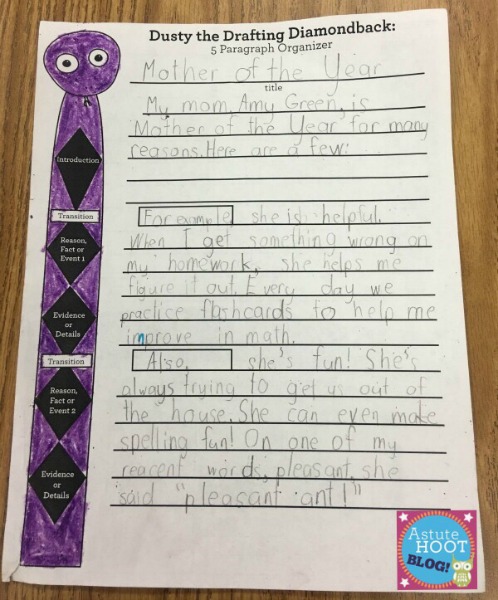 Dusty the Drafting Diamondback:
5 Paragraph Organizer
Mother of the Year
title
My mom, Amy Green, is
Mother of the Year for many
reasons. Here are a few:
Introduction
Transition
For example, she is helpful.
Reason,
Fact or
Event 1
When I get something wrong on
my homework, she helps me
figure it out. Every day we
Evidence
or
Details
practice flashcards to help me
improve in math.
Transition
Also, she's fun! She's
Reason,
Fact or
Event 2
always trying to get us out of
the house. She can even make
spelling fun! On one of my
Evidence
or
Details
reacent words, pleasant, she
said "pleasant ant!"
Astute
HOOT
BLOG!